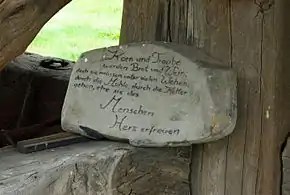 Korn und Traube
werden Brot und Wein,
doch sie müssen unter vielen Wehen
durch die Mühle, durch die Kelter
gehen, ehe sie des
Menschen
Herz erfreuen